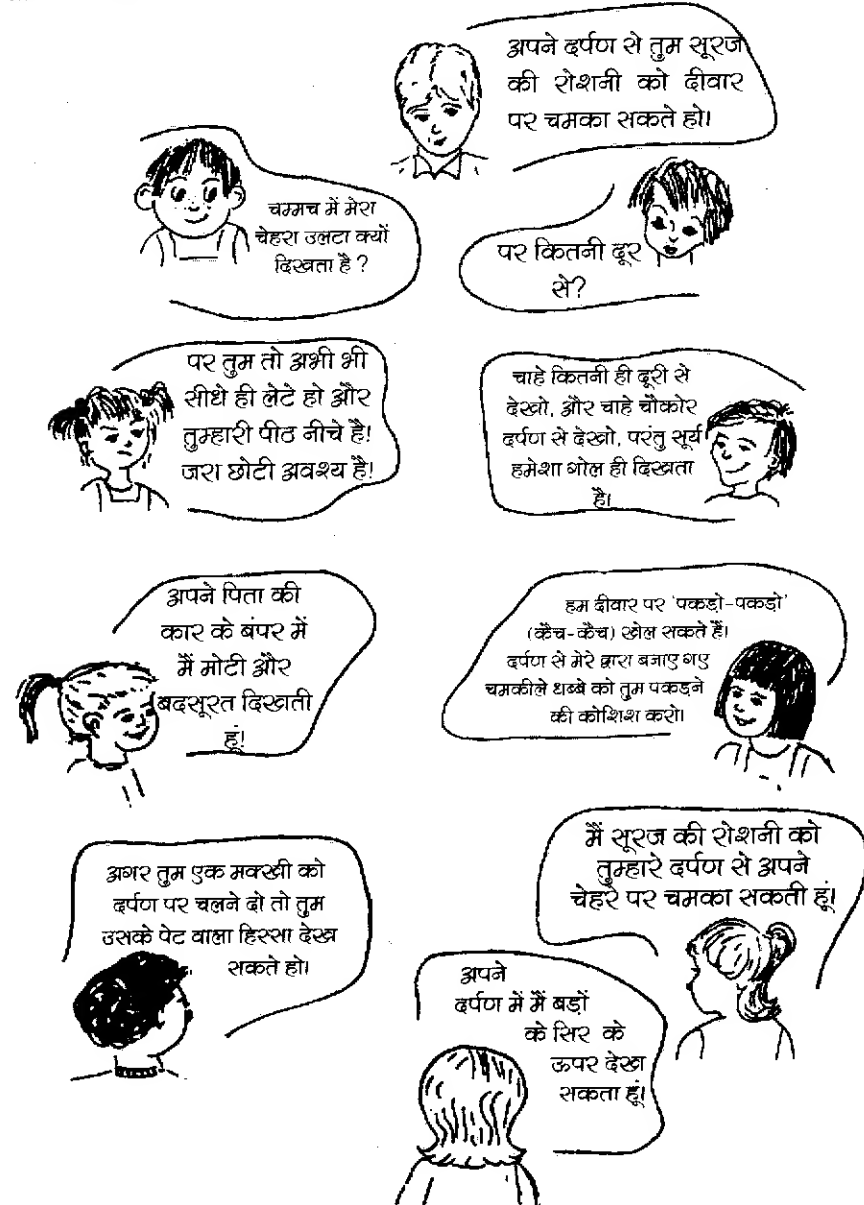 अपने दर्पण से तुम सूरज
की रोशनी को दीवार
पर चमका सकते हो।
चम्मच में मेरा
चेहरा उलटा क्यों
दिखता है ?
पर कितनी दूर
से?
पर तुम तो अभी भी
सीधे ही लेटे हो और
तुम्हारी पीठ नीचे है!
जरा छोटी अवश्य है!
चाहे कितनी ही दूरी से
देखो, और चाहे चौकोर
दर्पण से देखो, परंतु सूर्य
हमेशा गोल ही दिखता
है।
अपने पिता की
कार के बंपर में
मैं मोटी और
बदसूरत दिखती
हूं!
हम दीवार पर 'पकड़ो-पकड़ो'
(कैच-कैच) खेल सकते हैं।
दर्पण से मेरे द्वारा बनाए गए
चमकीले धब्बे को तुम पकड़ने
की कोशिश करो।
अगर तुम एक मक्खी को
दर्पण पर चलने दो तो तुम
उसके पेट वाला हिस्सा देख
सकते हो।
मैं सूरज की रोशनी को
तुम्हारे दर्पण से अपने
चेहरे पर चमका सकती हूं!
अपने
दर्पण में मैं बड़ों
के सिर के
ऊपर देख
सकता हूं!